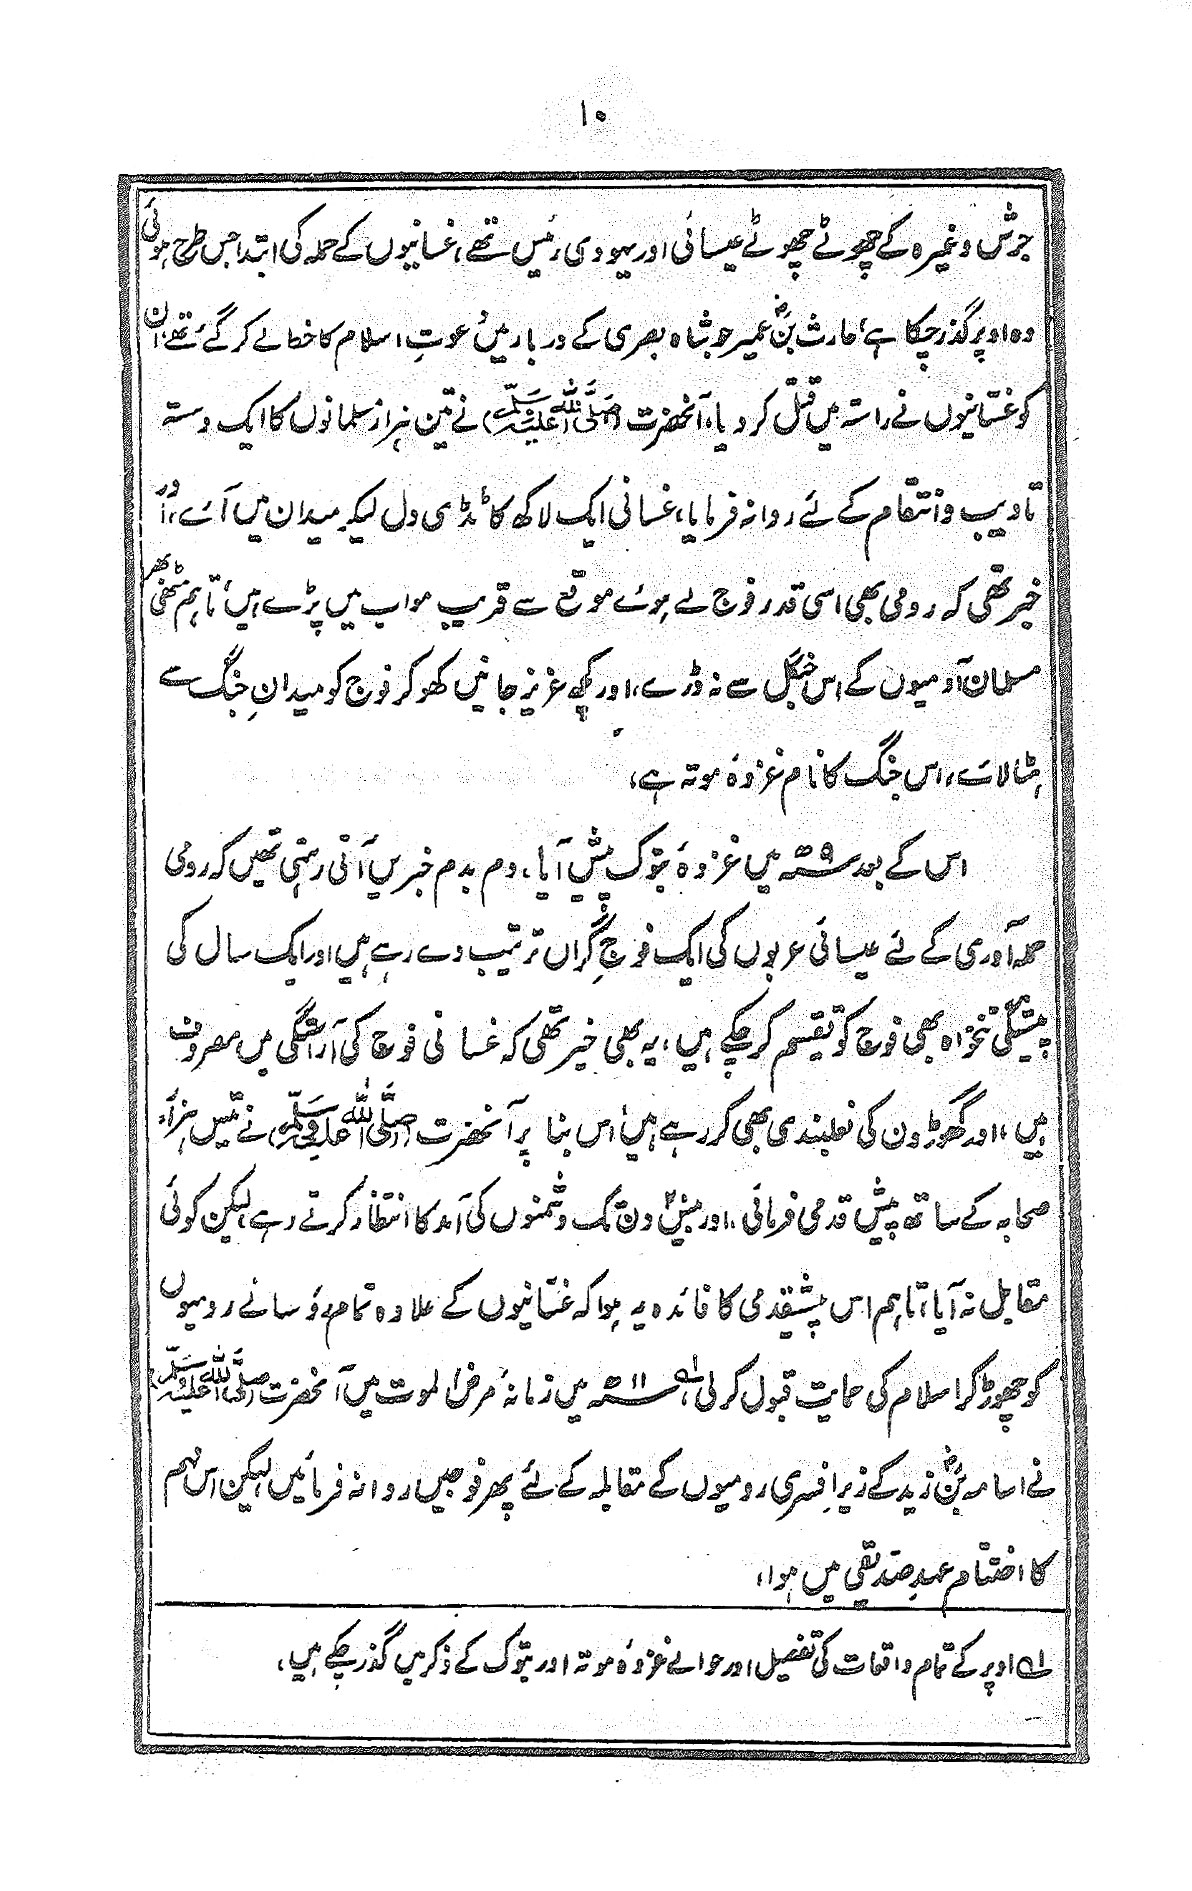 ۱۰
جرش وغیرہ کے چھوٹے چھوٹے عیسائی اور یہودی رئیس تھے، غسانیوں کے حملہ کی ابتدا جس طرح ہوئی
وہ اوپر گذر چکا ہے، حارث بنؓ عمیر جو شاہ بصری کے دربار میں دعوتِ اسلام کا خط لے کر گئے تھے، ان
کو غسّانیوں نے راستہ میں قتل کر دیا، آنحضرت (صلی اللہ علیہ وسلم) نے تین ہزار مسلمانوں کا ایک دستہ
تادیب و انتقام کے لئے روانہ فرمایا، غسانی ایک لاکھ کا ٹڈی دل لیکر میدان میں آئے، اور
خبر تھی کہ رومی بھی اسی قدر فوج لئے ہوئے موقع سے قریب مواب میں پڑے ہیں، تاہم مٹھی بھر
مسلمان آدمیوں کے اس جنگل سے نہ ڈرے، اور کچھ عزیز جانیں کھو کر فوج کو میدانِ جنگ سے
ہٹا لائے، اس جنگ کا نام غزوۂ موتہ ہے،
اس کے بعد ۹ھ میں غزوۂ تبوک پیش آیا، دم بدم خبریں آتی رہتی تھیں کہ رومی
حملہ آوری کے لئے عیسائی عربوں کی ایک فوجِ گراں ترتیب دے رہے ہیں اور ایک سال کی
پیشگی تنخواہ بھی فوج کو تقسیم کر چکے ہیں، یہ بھی خبر تھی کہ غسانی فوج کی آراستگی میں مصروف
ہیں، اور گھوڑون کی نعلبندی بھی کر رہے ہیں، اس بنا پر آنحضرت (صلی اللہ علیہ وسلم) نے تیس ہزار
صحابہ کے ساتھ پیش قدمی فرمائی، اور بیس۲۰ دن تک دشمنوں کی آمد کا انتظار کرتے رہے، لیکن کوئی
مقابل نہ آیا، تاہم اس پیشقدمی کا فائدہ یہ ہوا کہ غسّانیوں کے علاوہ تمام رؤسا نے رومیوں
کو چھوڑ کر اسلام کی حمایت قبول کر لی، لہ ۱۱ھ میں زمانۂ مرض الموت میں آنحضرت (صلی اللہ علیہ وسلم)
نے اسامہ بنؓ زید کے زیر افسری رومیوں کے مقابلہ کے لئے پھر فوجیں روانہ فرمائیں، لیکن اس مہم
کا اختتام عہدِ صدیقی میں ہوا،
لہ اوپر کے تمام واقعات کی تفصیل اور حوالے غزوۂ موتہ اور تبوک کے ذکر میں گذر چکے ہیں،